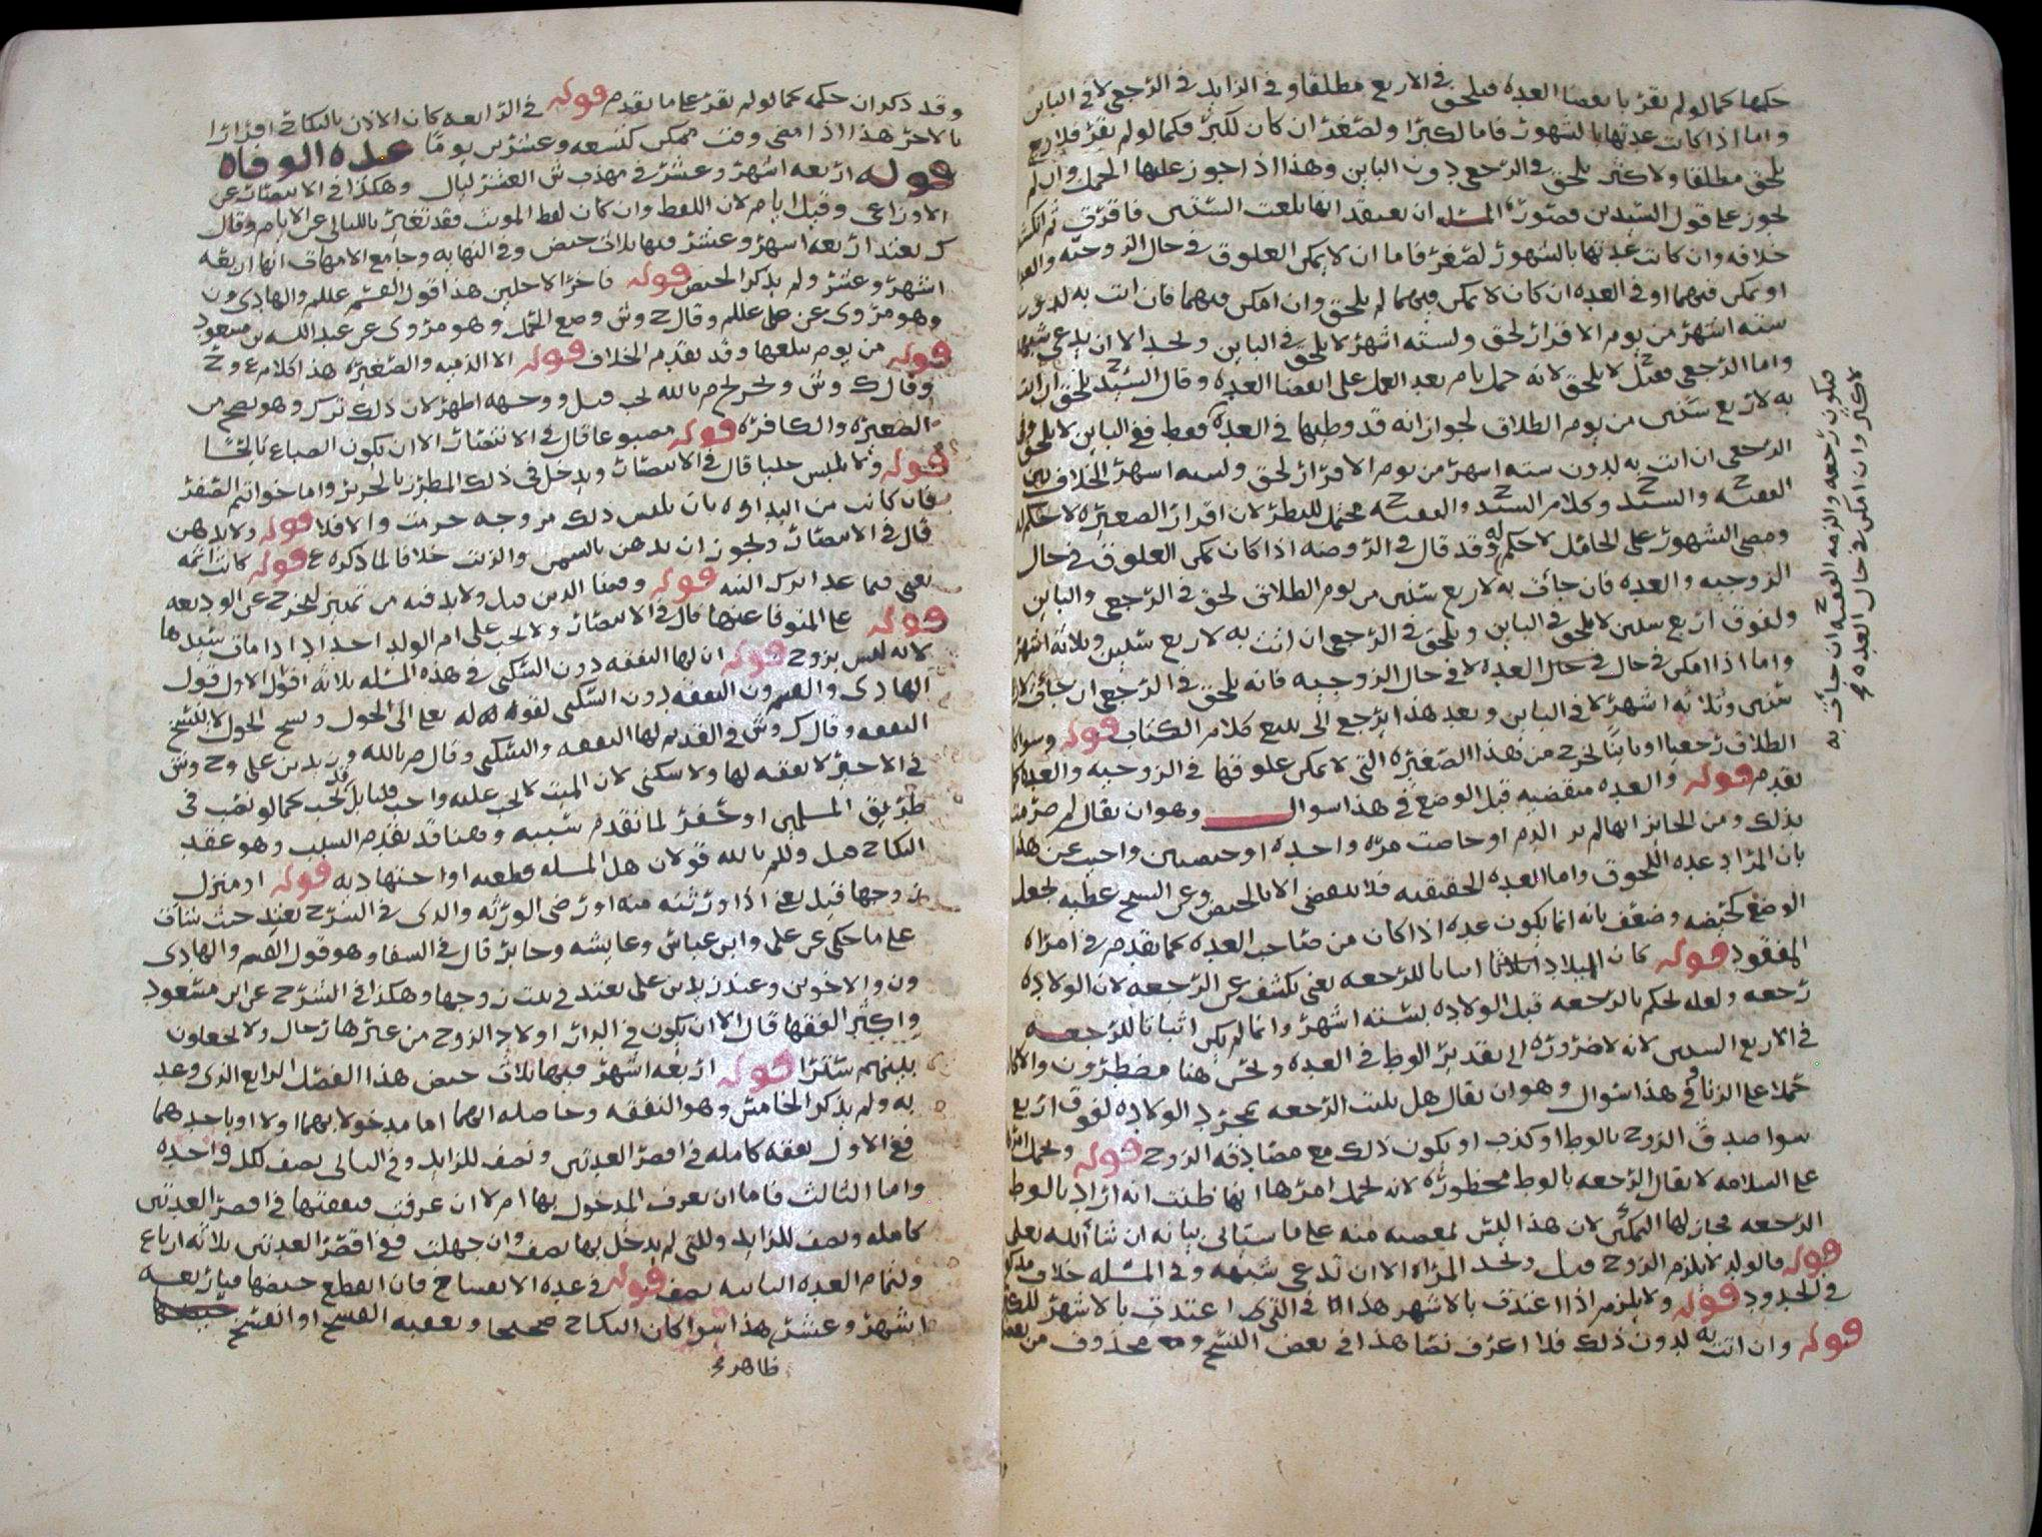 حكمها كما لو لم تقر بانقضا العده فيلحق في الاربع مطلقا وفي الزايد في الرجعي لا في الباين
واما اذا كانت عدتها بالشهور فاما لكبر او لصغر ان كان لكبر فكما لو لم تقر فلاربع
يلحق مطلقا ولاكثر يلحق في الرجعي دون الباين وهذا اذا جوز عليها الحمل وان لم
يجوز على قول السيدين فصورة المسله ان يعتقد انها بلغت الستين فاقرت ثم انكشف
خلافه وان كانت عدتها بالشهور لصغر فاما ان لا يمكن العلوق في حال الزوجيه والعده
او يمكن فيهما او في العده ان كان لا يمكن فيهما لم يلحق وان امكن فيهما فان اتت به لدون
سته اشهر من يوم الاقرار لحق ولسته اشهر لا يلحق في الباين وتحد الا ان يدعي شبهه
واما الرجعي فقيل لا يلحق لانه حمل تام بعد العمل على انقضا العده وقال السيد ح يلحق ان اتت
به لاربع سنين من يوم الطلاق لجواز انه قد وطيها في العده فقط ففي الباين لا يلحق وفي
الرجعي ان اتت به لدون سته اشهر من يوم الاقرار لحق ولسته اشهر الخلاف بين
الفقيه ح والسيد ح وكلام السيد ح والفقيه ح محتمل للنظر لان اقرار الصغيره لا حكم له
ومضي الشهور على الحامل لا حكم له وقد قال في الروضه اذا كان يمكن العلوق في حال
الزوجيه والعده فان جات به لاربع سنين من يوم الطلاق لحق في الرجعي والباين
ولفوق اربع سنين لا يلحق في الباين ويلحق في الرجعي ان اتت به لاربع سنين وثلاثه اشهر
واما اذا امكن في حال في حال العده لا في حال الزوجيه فانه يلحق في الرجعي ان جات
سنين وثلاثه اشهر لا في الباين وبعد هذا يرجع الى تتبع كلام الكتاب قوله وسوا كان
الطلاق رجعيا او باينا يخرج من هذا الصغيره التي لا يمكن علوقها في الزوجيه والعده
تقدم قوله والعده منقضيه قبل الوضع في هذا سوال وهو ان يقال لم
بذلك ومن الجايز انها لم تر الدم او حاضت مره واحده او حيضتين واجيب عن هذا
بان المراد عده اللحوق واما العده الحقيقيه فلا تنقضي الا بالحيض وعن الشيخ عطيه يجعل
الوضع كحيضه وضعف بانه انما يكون عده اذا كان من صاحب العده كما تقدم في امراه
المفقود قوله كان الميلاد اثباتا للرجعه يعني يكشف عن الرجعه لان الولاده
رجعه ولعله يحكم بالرجعه قبل الولاده بسته اشهر وانما لم يكن اثباتا للرجعه
في الاربع السنين لانه لا ضروره الى تقدير الوطي في العده ونحن هنا مضطرون والا كان
حملا على الزنا وفي هذا سوال وهو ان يقال هل يثبت الرجعه بمجرد الولاده لفوق اربع
سوا صدق الزوج بالوطي او كذب او يكون ذلك مع مصادقه الزوج قوله ويحمل امرها
على السلامه لا يقال الرجعه بالوطي محظوره لانه يحمل امرها انها ظنت انه اراد بالوطي
الرجعه فجاز لها التمكين لان هذا ليس بمعصيه منه على ما سياتي بيانه ان شا الله تعلى
قوله فالولد لا يلزم الزوج قيل وتحد المراه الا ان تدعي شبهه وفي المسله خلاف
في الحدود قوله ولا يلزم اذا اعتدت بالاشهر هذا في التي اعتدت بالاشهر
قوله وان اتت به لدون ذلك فلا اعرف نصا هذا في بعض النسخ وهو محذوف من بعضها
فيكون رجعه والزمه الفقيه ح ان جات به
لاكثر وان امكن في حال العده
وقد ذكر ان حكمه كما لو لم تقر على ما تقدم قوله في الرابعه كان الاذن بالنكاح اقرارا
بالاخر هذا اذا مضى وقت ممكن كتسعه وعشرين يوما عده الوفاه
قوله اربعه اشهر وعشر في مهذب ش العشر ليال وهكذا في الانتصار عن
الاوزاعي وقيل ايام لان اللفظ وان كان لفظ المونث فقد تعبر بالليالي عن الايام وقال
ك تعتد اربعه اشهر وعشر فيها ثلاث حيض وفي النهايه وجامع الامهات انها اربعه
اشهر وعشر ولم يذكر الحيض قوله فاخر الاجلين هذا قول القسم عللم والهادي ون
وهو مروي عن علي عللم وقال ح وش وضع الحمل وهو مروي عن عبدالله بن مسعود
قوله من يوم بلغها وقد تقدم الخلاف قوله الا الذميه والصغيره هذا كلام ع وح
وقال ك وش وتخرج م بالله تجب قيل ووجهه اظهر لان ذلك ترك وهو يصح من
الصغيره والكافره قوله مصبوغا قال في الانتصار الا ان يكون الصباغ
قوله ولا تلبس حليا قال في الانتصار ويدخل في ذلك المطرز بالحرير واما خواتم الصفر
فان كانت من البداوه بان تلبس ذلك مزوجه حرمت والا فلا قوله ولا تدهن
قال في الانتصار ويجوز ان تدهن بالسمن والزيت خلافا لما ذكره ع قوله كانت اثمه
يعني فيما عدا ترك النيه قوله وقضا الدين قيل ولا بد فيه من تمييز ليخرج عن الوديعه
قوله على المتوفا عنها قال في الانتصار ولا يجب على ام الولد احداد اذا مات سيدها
لانه ليس بزوج قوله ان لها النفقه دون السكنى في هذه المسله ثلاثه اقوال الاول قول
الهادي والقسم ون النفقه دون السكنى لقوله تعلى الى الحول ونسخ الحول لا ينسخ
النفقه وقال ك وش في القديم لها النفقه والسكنى وقال م بالله وزيد بن علي وح وش
في الاخير لا نفقه لها ولا سكنى لان الميت لا يجب عليه واجب قلنا بل قد يجب كما لو نصب في
طريق المسلمين او حفر لما تقدم سببه وهنا قد تقدم السبب وهو عقد
النكاح قيل وللم بالله قولان هل المسله قطعيه او اجتهاديه قوله او منزل
زوجها قيل يعني اذا ورثته منه او رضي الورثه والذي في الشرح تعتد حيث شات
على ما حكى عن علي وابن عباس وعايشه وجابر قال في السفا وهو قول القسم والهادي
ون والاخوين وعند زيد بن علي تعتد في بيت زوجها وهكذا في الشرح عن ابن مسعود
واكثر الفقها قال الا ان يكون في الدار اولاد الزوج من غيرها رجال ولا يجعلون
بينهم سترا قوله اربعه اشهر فيها ثلاث حيض هذا الفصل الرابع الذي وعد
به ولم يذكر الخامس وهو النفقه وحاصله انهما اما مدخولا بهما او لا او باحدهما
ففي الاول نفقه كامله في اقصر العدتين ونصف للزايد وفي الثاني نصف لكل واحده
واما الثالث فاما ان تعرف المدخول بها ام لا ان عرفت فنفقتها في اقصر العدتين
كامله ونصف للزايد وللتي لم يدخل بها نصف وان جهلت ففي اقصر العدتين ثلاثه ارباع
ولتمام العده الثانيه نصف قوله في عده الانفساخ فان انقطع حيضها فباربعه
اشهر وعشر هذا سوا كان النكاح صحيحا وتعقبه الفسخ او انفسخ
ظاهر